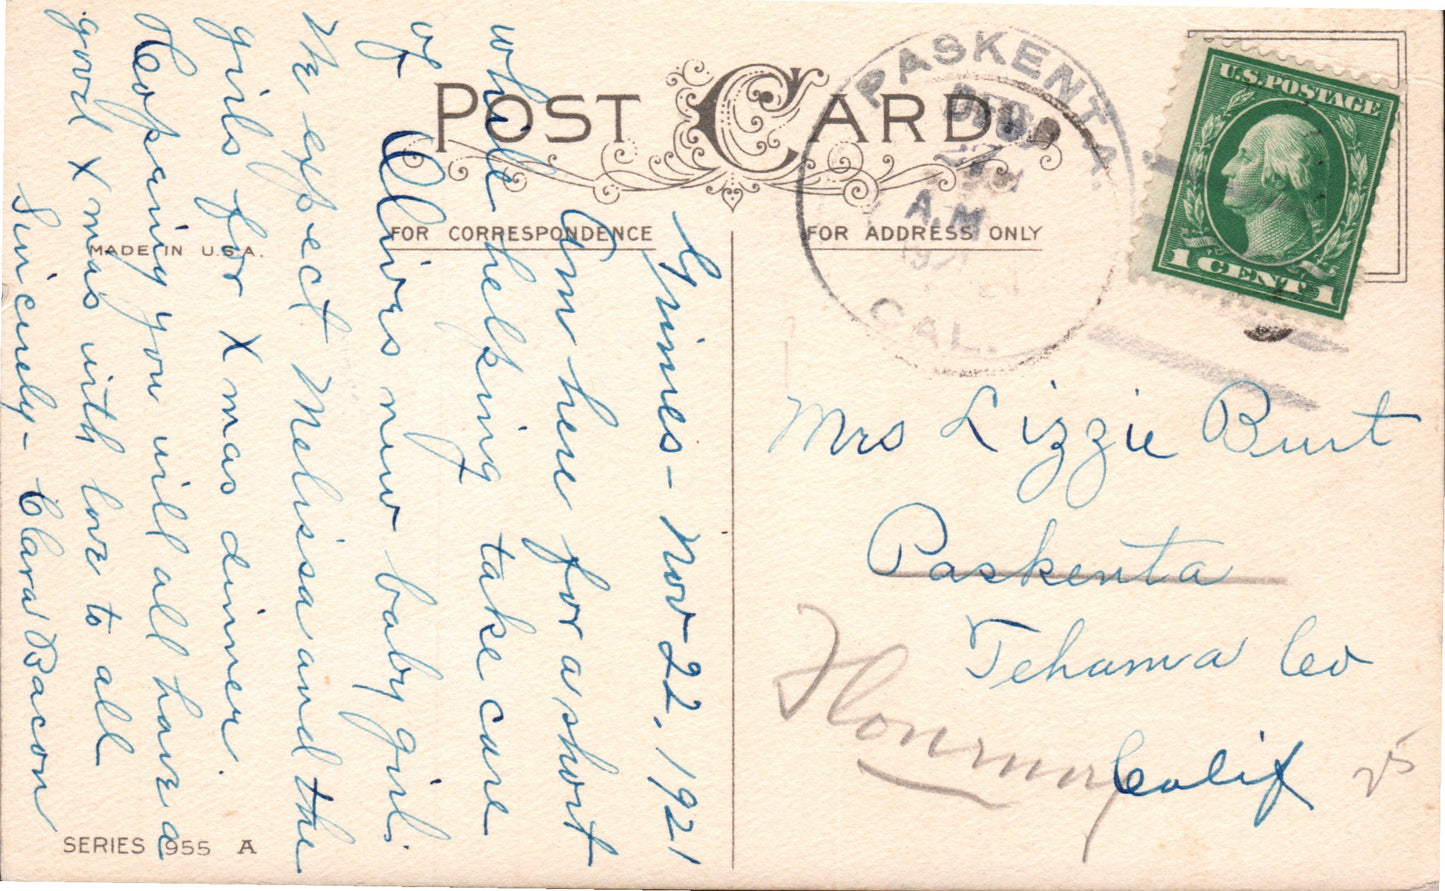 POST CARD
FOR CORRESPONDENCE
FOR ADDRESS ONLY
MADE IN U.S.A.
SERIES 955 A
PASKENTA,
A.M
CAL.
U.S. POSTAGE
1 CENT 1
Grimes - Nov 22, 1921
Am here for a short
while helping take care
of Olivers new baby girl.
We expect Melissa and the
girls for X mas dinner.
Hopeing you will all have a
good X mas with love to all
Sincerely - Clara Bacon
Mrs Lizzie Burt
Paskenta
Tehama Co
Calif
25